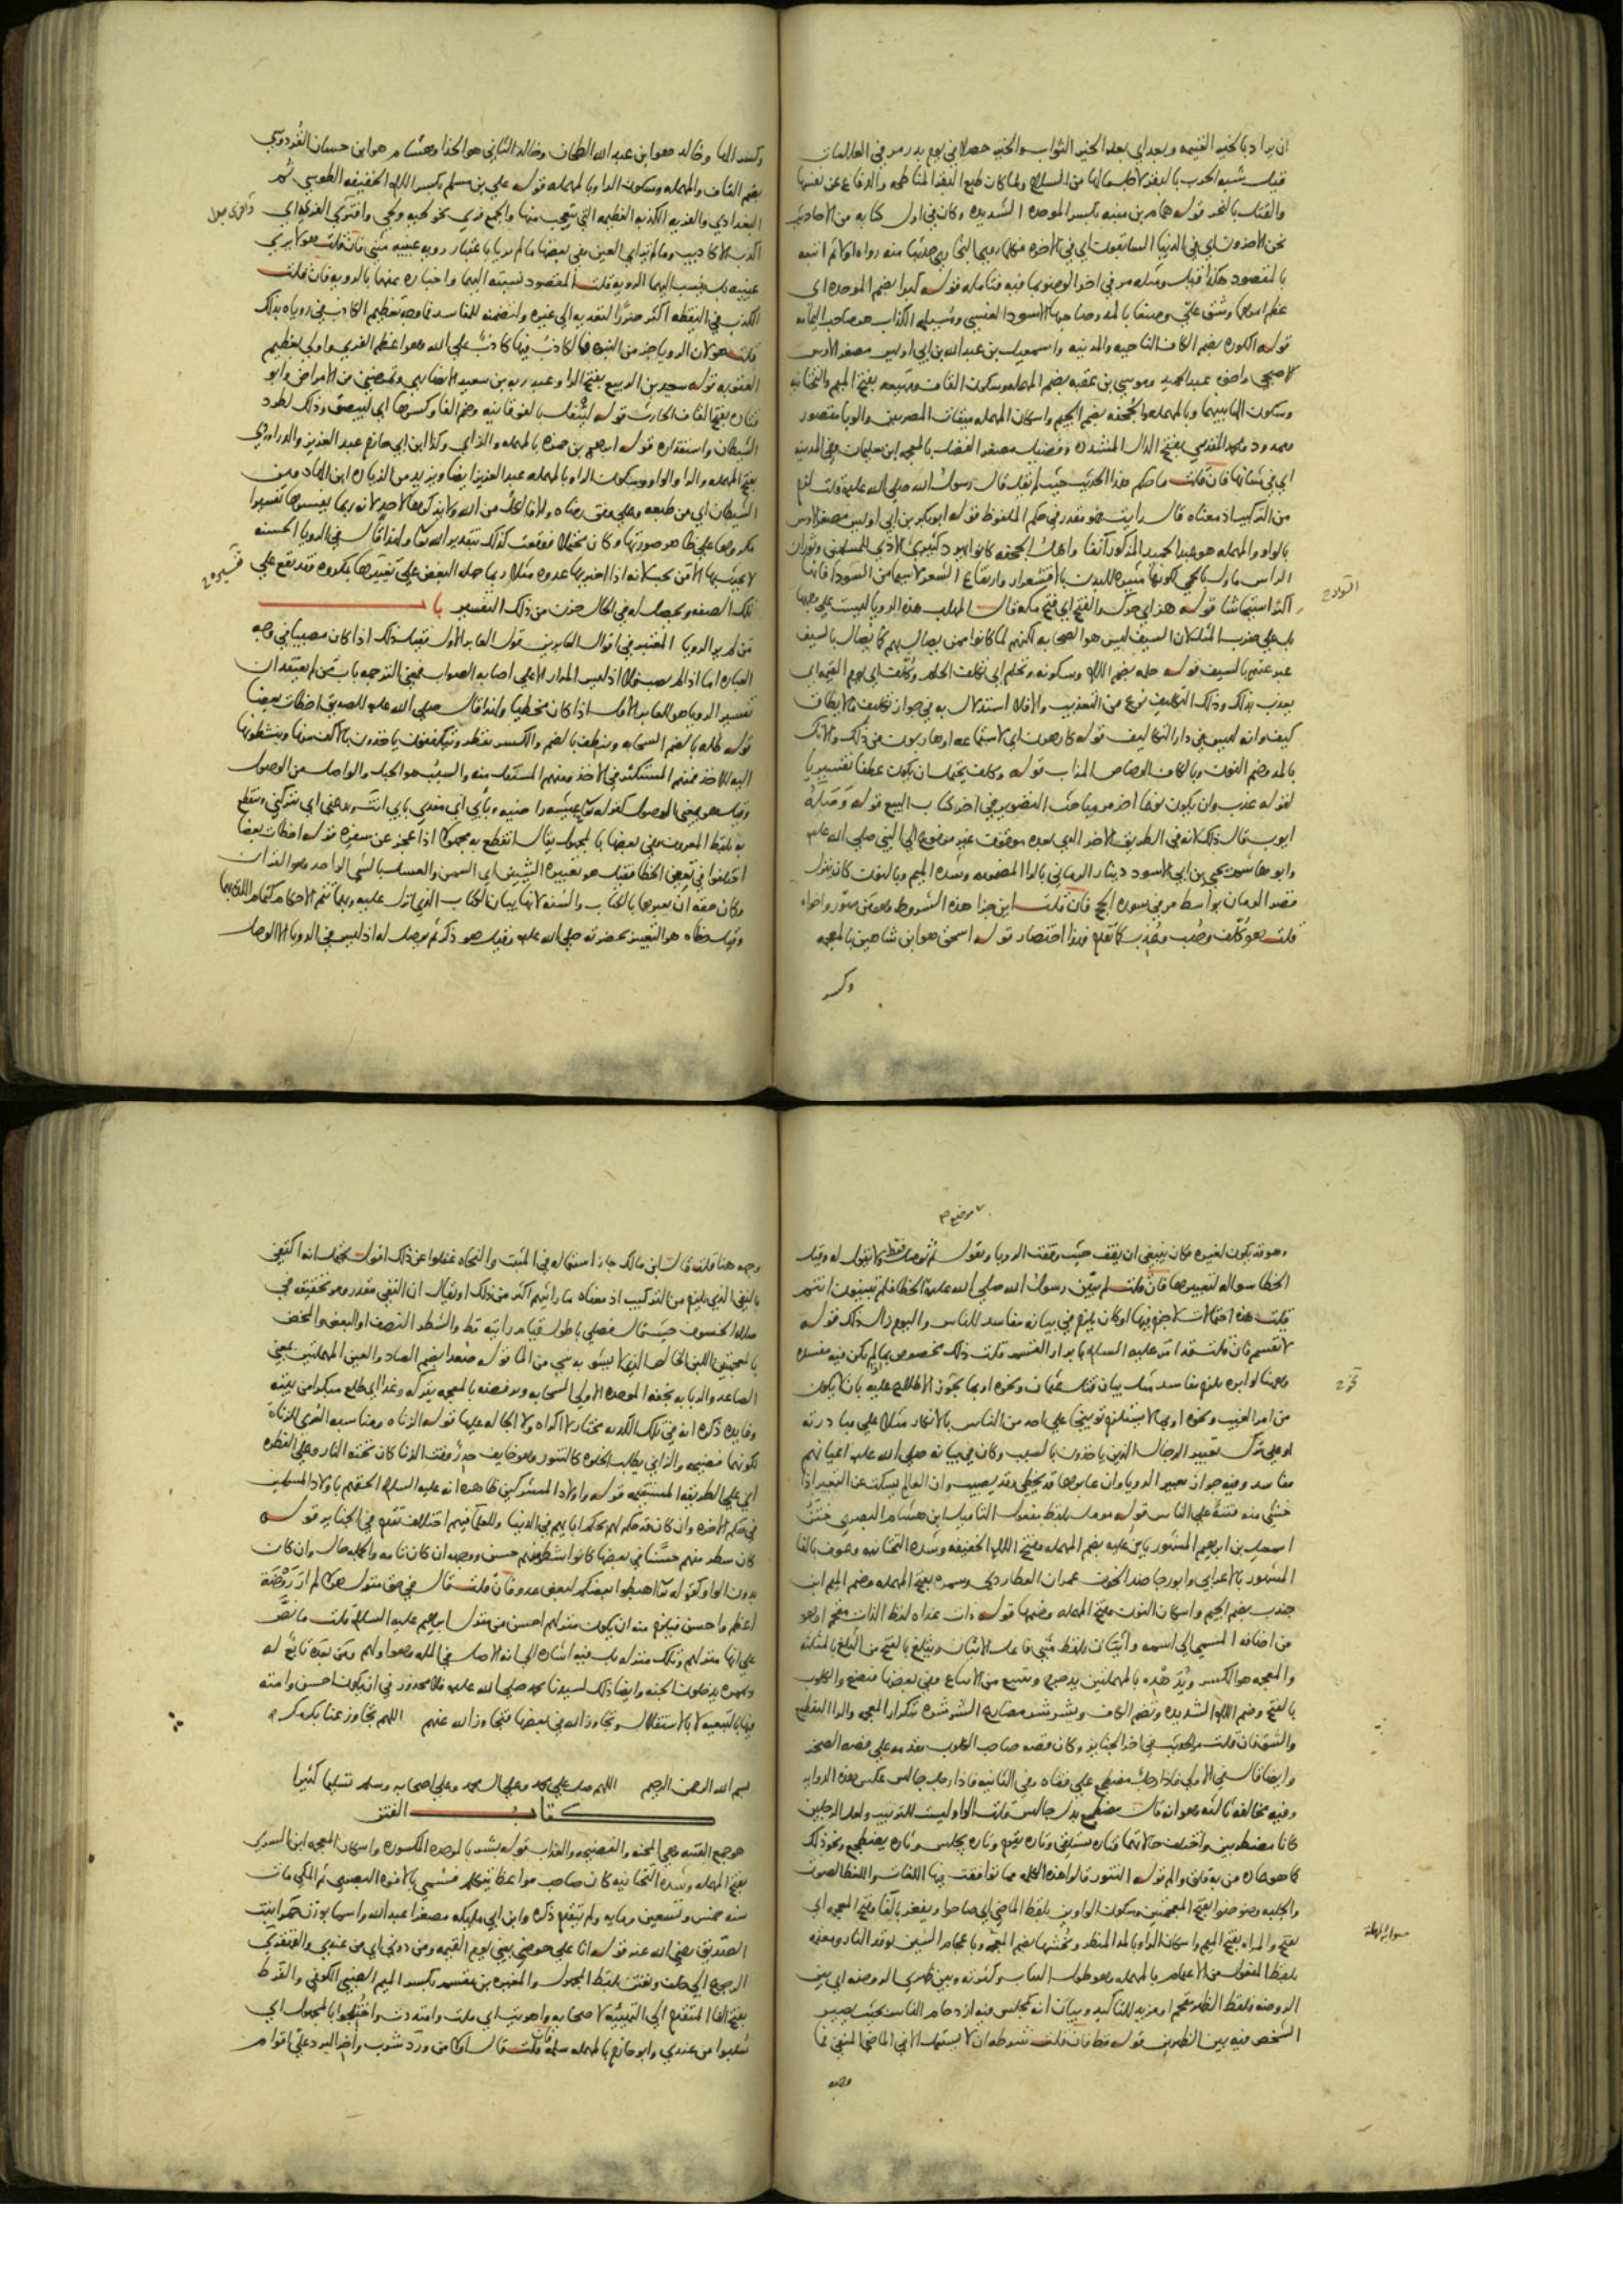 ان يراد بالخير الغنيمة وبعد اي بعد الخير الثواب والخير حصلا في يوم بدر مر في العلامات
قيل شبه الحرب بالبقر لاجل ما لها من السلاح ولما كان طبع البقر المناطحة والدفاع عن نفسها
والقتل بالنحر قوله همام بن منبه بكسر الموحدة الشديدة وكان في اول كتابه من الاحاديث
نحن الاخرون اي في الدنيا السابقون اي في الاخرة
بالمقصود هكذا قيل ومثله مر في اخر الوضوء بما فيه فتأمله قوله كبرا بضم الموحدة اي
عظم امرهما وشق علي وصنعا بالمد وصاحبها الاسود العنسي ومسيلمة الكذاب هو صاحب اليمامة
قوله الكورة بضم الكاف الناحية والمدينة واسمعيل بن عبد الله بن ابي اويس مصغر الاوس
الاصبحي واخوه عبد الحميد وموسى بن عقبة بضم المهملة وسكون القاف ومهيعة بفتح الميم والتحتانية
وسكون الهاء بينهما وبالمهملة والجحفة بضم الجيم واسكان المهملة ميقات المصريين والوبا مقصور
وممدود ومحمد المقدمي بفتح الدال المشددة وفضيل مصغر الفضل بالمعجمة ابن سليمان وفي المدينة
اي في شانها فان قلت ما حكم هذا الحديث حيث لم يقل قال رسول الله صلى الله عليه قلت
من التركيب اذ معناه قال رايت فهو مقدر في حكم الملفوظ قوله ابو بكر بن ابي اويس مصغر الاوس
بالواو والمهملة هو عبد الحميد المذكور آنفا واهل الجحفة كانوا يهود كثيري الاذى للمسلمين وثوران
الراس ماول بالحمى لكونها مثيرة للبدن بالاقشعرار وارتفاع الشعر لاسيما من السودا فانها
اكثر استيحاشا قوله هززته اي حركته والفتح اي فتح مكة قال المهلب هذه الرويا ليست على وجهها
بل على ضرب المثل لان السيف ليس هو الصحابة لكنهم لما كانوا ممن يصال بهم كما يصال بالسيف
عبر عنهم بالسيف قوله حلم بضم اللام وسكونه وتحلم اي تكلف الحلم وكلف اي يوم القيامة اي
يعذب بذلك وذلك التكليف نوع من التعذيب ولا استدلال به في جواز تكليف ما لا يطاق
كيف وانه ليس في دار التكليف قوله كارهون اي لاستماعه او هاربون من ذلك والانك
بالمد وضم النون وبالكاف الرصاص المذاب قوله وكلف يحتمل ان يكون عطفا تفسيريا
لقوله عذب وان يكون نوعا اخر مر مباحث التصوير في اخر كتاب البيع قوله وصله
ايوب قال ذلك لانه في الطريق الاخر الذي بعده موقوف غير مرفوع الى النبي صلى الله عليه
وابو هاشم يحيى بن ابي الاسود دينار الرماني بالرا المضمومة وشدة الميم وبالنون كان ينزل
قصر الرمان بواسط مر في سورة الحج فان قلت اين جزا هذه الشروط
قلت هو كلف وصب وعذب كما تقدم وهذا اختصار قوله اسحق هو ابن شاهين بالمعجمة
وكسر
التواريخ
وكسر الها وخالد هو ابن عبد الله الطحان وخالد الثاني هو الحذا وهشام هو ابن حسان القردوسي
بضم القاف والمهملة وسكون الرا وبالمهملة قوله علي بن مسلم بكسر اللام الخفيفة الطوسي ثم
البغدادي والفرية الكذبة العظيمة التي يتعجب منها والجمع فرى نحو لحية ولحى وافرى الفرى اي
اكذب الاكاذيب وما لم تر اي العين وفي بعضها ما لم يريا باعتبار روية عينيه مثنى فان قلت هو لا يري
عينيه بل ينسب اليهما الروية قلت المقصود نسبته اليهما واخباره عنهما بالروية فان قلت
الكذب في اليقظة اكثر ضررا لتعديه الى غيره ولتضمنه المفاسد فما وجه تعظيم الكاذب في روياه بذلك
قلت هو لان الرويا جزء من النبوة فالكاذب فيها كاذب على الله وهو اعظم الفرى واولى بعظيم
العقوبة قوله سعيد بن الربيع بفتح الرا وعبد ربه بن سعيد الانصاري وتمرضني من الامراض وابو
قتادة بفتح القاف الحارث قوله ليتفل بالفوقانية وضم الفا وكسرها اي ليبصق وذلك لطرد
الشيطان واستقذاره قوله ابرهيم بن حمزة بالمهملة والزاي وكذا ابن ابي حازم عبد العزيز والدراوردي
بفتح المهملة والرا والواو وسكون الرا وبالمهملة عبد العزيز ايضا ويزيد من الزيادة ابن الهاد ومن
الشيطان اي من طبعه وعلى وفق رضاه والا فالكل من الله ولا يذكرها لاحد لانه ربما يفسرها تفسيرا
مكروها على ظاهر صورتها وكان محتملا فوقعت كذلك بتقدير الله تعالى ولهذا قال في الرويا الحسنة
لا يحدث بها الا من يحب لانه اذا اخبر بها عدوه مثلا ربما حمله البغض على تفسيرها بمكروه فقد تقع على
تلك الصفة ويحصل له في الحال حزن من ذلك التفسير باب
من لم ير الرويا المعتبر في اقوال العابرين قول العابر الاول فقيل ذلك اذا كان مصيبا في وجه
العبارة اما اذا لم يصب فلا اذ ليس المدار الا على اصابة الصواب فمعنى الترجمة باب من لم يعتقد ان
تفسير الرويا هو للعابر الاول اذا كان مخطيا ولهذا قال صلى الله عليه للصديق اخطات بعضا
قوله ظلة بالضم السحابة وينطف بالضم والكسر يقطر ويتكففون ياخذون بالاكف
اليه للاخذ فمنهم المستكثر في الاخذ ومنهم المستقل منه والسبب هو الحبل والواصل من الوصول
وقيل هو بمعنى الموصول كقوله تعالى عيشة راضية وبابي اي مفدي بابي انت
به بلفظ المعروف وفي بعضها بالمجهول يقال انقطع به مجهولا اذا عجز عن سفره قوله اخطات بعضا
اختلفوا في تعيين الخطا فقيل هو تعبيره الشيئين اي السمن والعسل بالشي الواحد وهو القران
وكان حقه ان يعبرهما بالكتاب والسنة لانها بيان للكتاب الذي انزل عليه وبهما تتم الاحكام كتمام اللذة بهما
وقيل خطاه هو التعبير بحضرته صلى الله عليه وقيل هو ذكر ثم يوصل له اذ ليس في الرويا الا الوصل
موضع
وهو قد يكون لغيره فكان ينبغي ان يقف حيث وقفت الرويا ويقول ثم يوصل فقط ولا يقول له وقيل
الخطا سواله لتعبيرها فان قلت لم يبين رسول الله صلى الله عليه الخطا فلم تبينون انتم
قلت هذه احتمالات لا جزم فيها او كان يلزم في بيانه مفاسد للناس واليوم زال ذلك قوله
لا تقسم فان قلت قد امر عليه السلام بابرار القسم قلت ذلك مخصوص بما لم يكن فيه مفسدة
وههنا لو ابره يلزم مفاسد مثل بيان قتل عثمان ونحوه او بما يجوز الاطلاع عليه بان لا يكون
من امر الغيب ونحوه او بما لا يستلزم توبيخا على احد من الناس بالانكار مثلا على مبادرته
او على ترك تعيين الرجال الذين ياخذون بالسبب وكان في بيانه صلى الله عليه اعيانهم
مفاسد وفيه جواز تعبير الرويا وان عابرها قد يخطي وقد يصيب وان العالم يسكت عن التعبير اذا
خشي منه فتنة على الناس قوله مومل بلفظ مفعول التاميل ابن هشام البصري ختن
اسمعيل بن ابراهيم المشهور بابن علية بضم المهملة وفتح اللام الخفيفة وشدة التحتانية وعوف بالفا
المشهور بالاعرابي وابو رجا ضد الخوف عمران العطاردي وسمرة بفتح المهملة وضم الميم ابن
جندب بضم الجيم واسكان النون وفتح المهملة وضمها قوله ذات غداة لفظ الذات مقحم او هو
من اضافة المسمى الى اسمه وآتيان بلفظ مثنى فاعل الاتيان ويثلغ بالفتح من الثلغ بالمثلثة
والمعجمة هو الكسر ويتدهده بالمهملتين يتدحرج
بالفتح وضم اللام الشديدة وبضم الكاف ويشرشر مضارع الشرشرة بتكرار المعجمة والرا القطع
والشق فان قلت مر الحديث في اخر الجنايز وكان قصة صاحب الكلوب مقدمة على قصة الصخر
وايضا قال في الاولى فاذا رجل مضطجع على قفاه وفي الثانية فاذا رجل جالس عكس هذه الرواية
وفيه مخالفة ثالثة وهو انه قال مضطجع بدل جالس قلت الواو ليست للترتيب ولعل الرجلين
كانا مضطربين واختلف حالاتهما فتارة يستلقي وتارة يقوم وتارة يجلس وتارة يضطجع ونحو ذلك
كما هو عادة من به قلق والم قوله التنور قالوا هذه الكلمة مما توافقت فيها اللغات واللغط الصوت
والجلبة وضوضوا بفتح المعجمتين وسكون الواوين بلفظ الماضي اي صاحوا ويفغر بالفا وفتح المعجمة اي
يفتح والمراة بفتح الميم واسكان الرا وبالمد المنظر ويحشها بضم المهملة وباعجام الشين يوقد النار ومعتمة
بلفظ المفعول من الاعتمام بالمهملة وهو طول النبات وكثرته وبين ظهري الروضة اي بين
الروضة ولفظ الظهر مقحم او مزيد للتاكيد
الشخص فيه بين الظهرين قوله قط فان قلت شرطه ان لا يستعمل الا في الماضي المنفي فما
وجه
صوابه المهملة
وجه هنا قلت قال ابن مالك جاز استعماله في المثبت والنحاة غفلوا عن ذلك اقول يحتمل انه اكتفى
بالنفي الذي يلزم من التركيب اذ معناه ما رايتهم اكثر من ذلك او يقال ان النفي مقدر ومر تحقيقه في
صلاة الخسوف حيث قال فصلى باطول قيام رايته قط والشطر النصف او البعض والمحض
بالمعجمتين اللبن الخالص الذي لا يشوبه شي من الما قوله صعدا بضم الصاد والعين المهملتين بمعنى
الصاعد والربابة بخفة الموحدة الاولى السحابة وفرفضه بالمعجمة يتركه وغدا اي طلع مبكرا من بيته
وفايدة ذكره انه في تلك الكذبة مختار لا اكراه ولا الجا له عليها قوله الزناة ومناسبة العري للزناة
لكونهما فضيحة والزاني يطلب الخلوة كالتنور وهو خايف حذر وقت الزنا كان تحته النار وعلى الفطرة
اي على الطريقة المستقيمة قوله واولاد المشركين ظاهره انه عليه السلام الحقهم باولاد المسلمين
في حكم الاخرة وان كان قد حكم لهم بحكم ابايهم في الدنيا وللعلما فيهم اختلاف تقدم في الجنايز قوله
كان شطر منهم حسنا في بعضها كانوا شطر منهم حسن ووجهه ان كان تامة والجملة حال وان كان
بدون الواو كقوله تعالى اهبطوا بعضكم لبعض عدو فان قلت قال في حق منزلهم لم ار روضة
اعظم واحسن فيلزم منه ان يكون منزلهم احسن من منزل ابراهيم عليه السلام قلت ما نص
على انها منزلهم وتلك منزله بل فيه اشارة الى انه الاصل في الملة وهو اولهم ومن بعده تابع له
وبممره يدخلون الجنة وايضا ذلك لسيدنا محمد صلى الله عليه فلا محذور في ان يكون احسن وامته
فيها بالتبعية لا بالاستقلال وتجاوز الله في بعضها فتجاوز الله عنهم اللهم تجاوز عنا بكرمك
بسم الله الرحمن الرحيم اللهم صل على محمد وعلى ال محمد وعلى اصحابه وسلم تسليما كثيرا
كتاب الفتن
هو جمع الفتنة وهي المحنة والفضيحة والعذاب قوله بشر بالموحدة المكسورة واسكان المعجمة ابن السري
بفتح المهملة وشدة التحتانية كان صاحب مواعظ يتكلم فسمي بالافوه البصري ثم المكي مات
سنة خمس وتسعين ومايه ولم يتقدم ذكره وابن ابي مليكة مصغرا عبد الله واسما بوزن حمرا بنت
الصديق رضي الله عنه قوله انا على حوضي يعني يوم القيمة ومن دوني اي من عندي والقهقرى
الرجوع الى خلف ونفتن بلفظ المجهول والمغيرة بن مقسم بكسر الميم الضبي الكوفي والفرط
بفتح الفا المتقدم الى التهيئة لاصحابه واهويت اي ملت وامتددت واختلجوا بالمجهول اي
سلبوا من عندي وابو حازم بالمهملة سلمة فان قلت قال اولا من ورد شرب واخرا ليردن علي اقوام